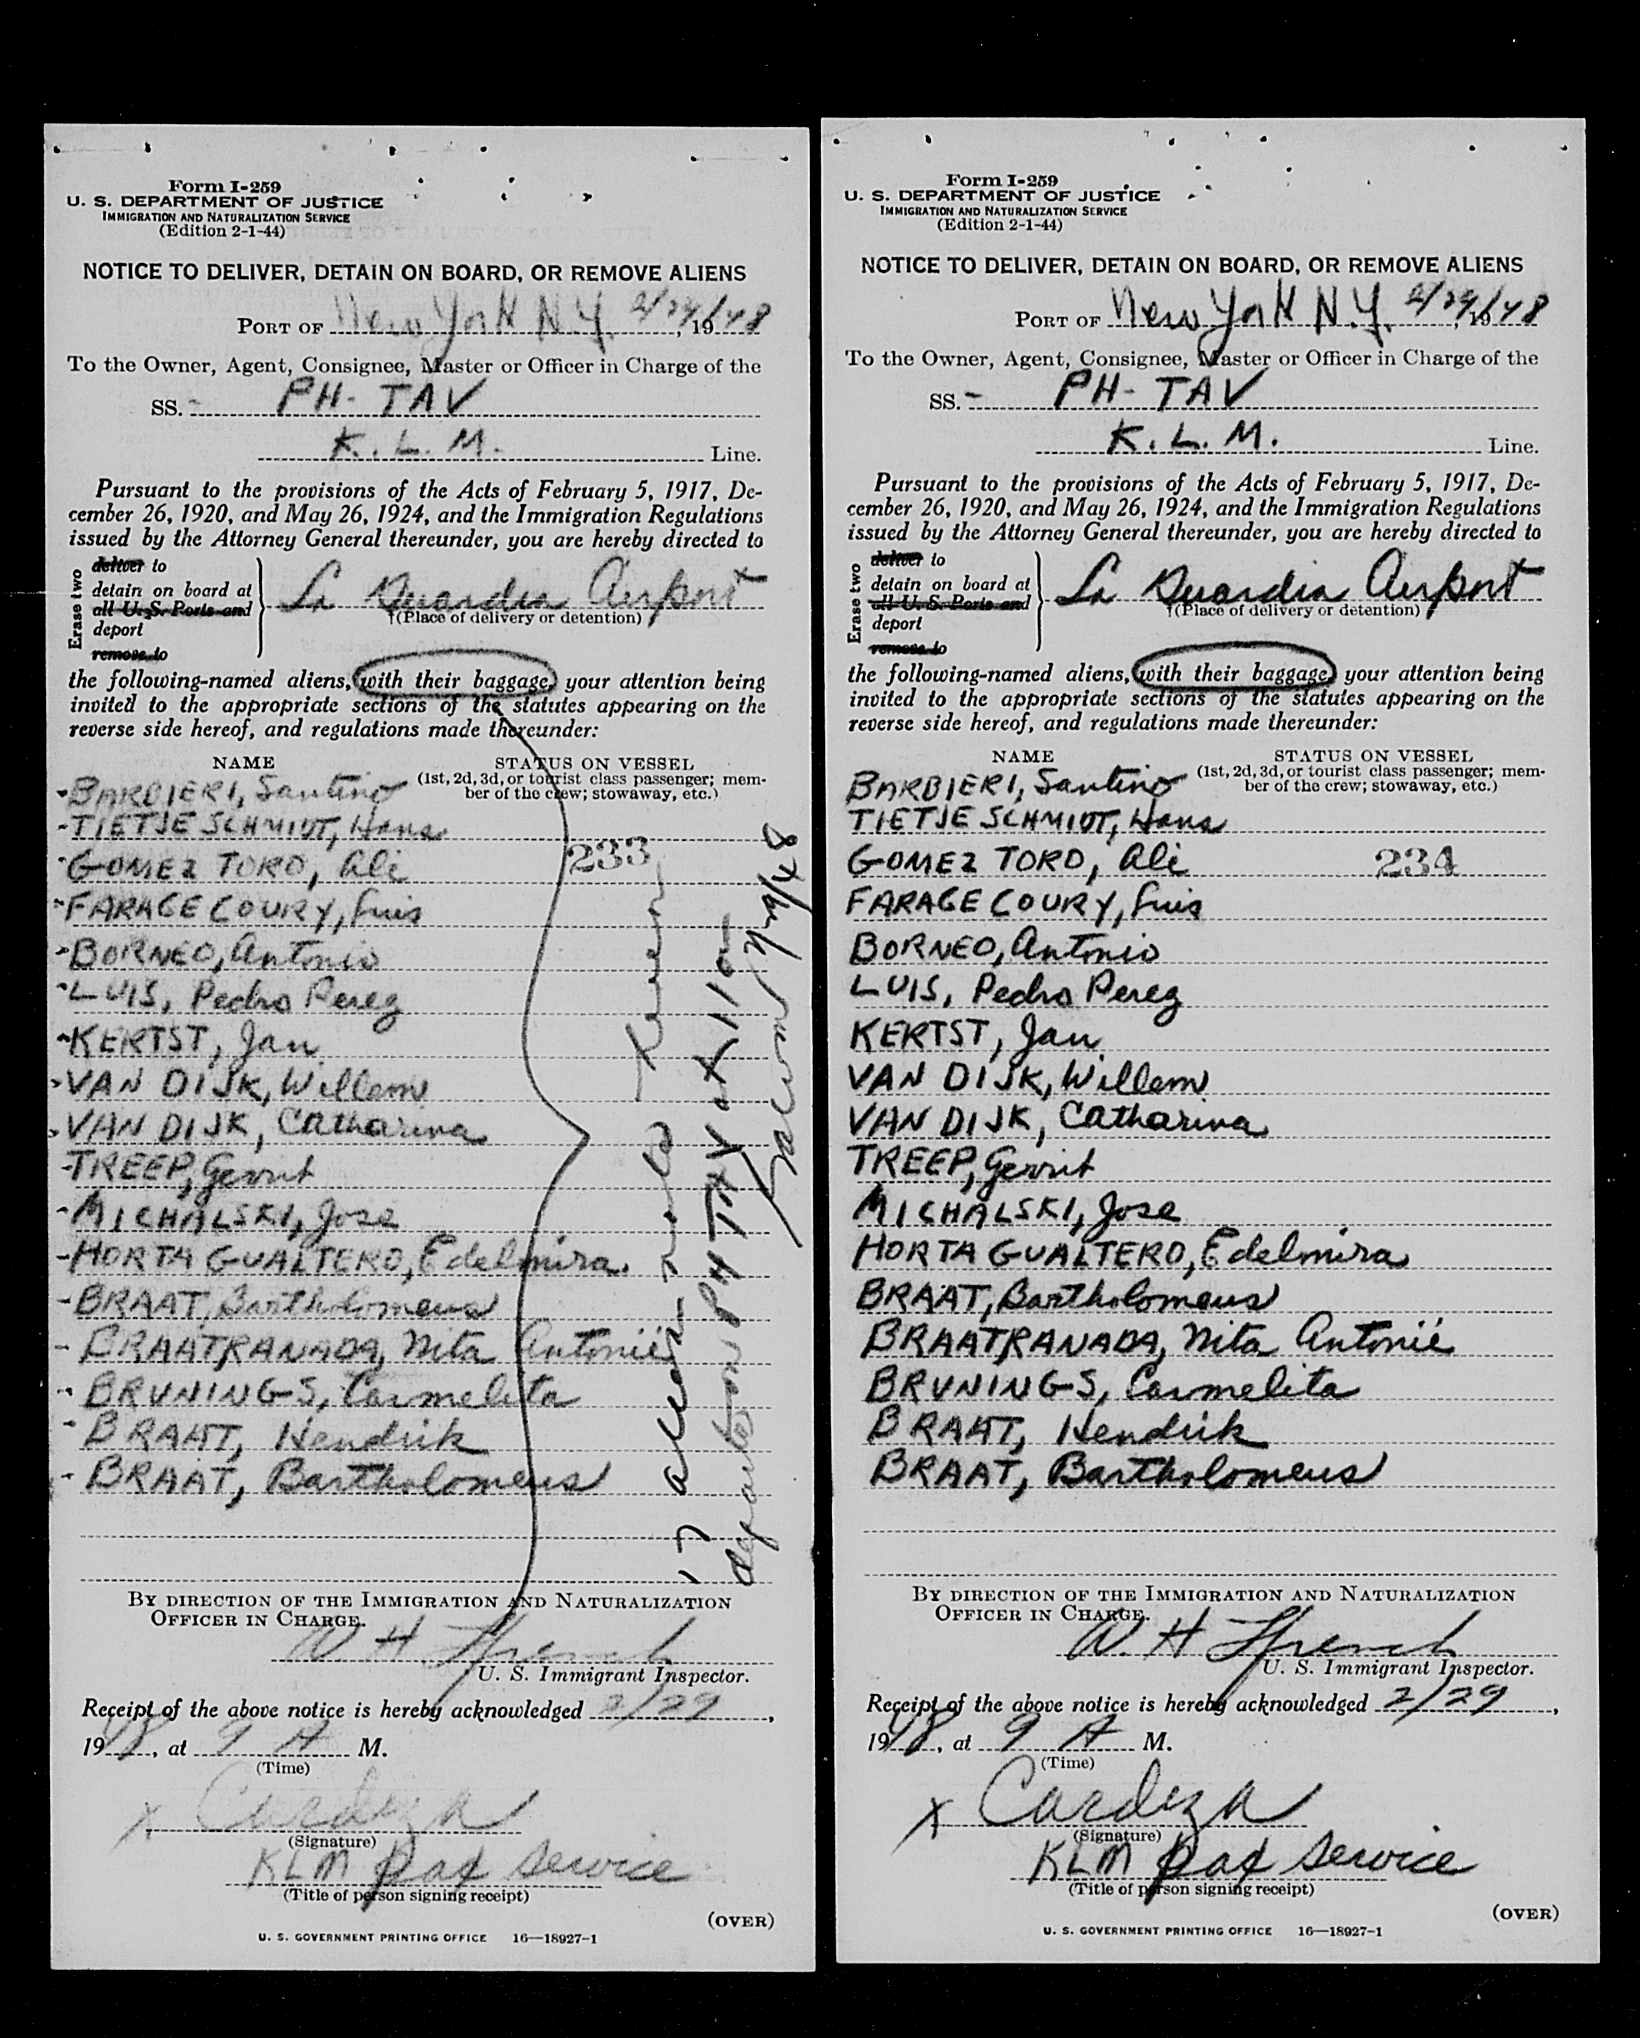 Form I-259
U. S. DEPARTMENT OF JUSTICE
IMMIGRATION AND NATURALIZATION SERVICE
(Edition 2-1-44)
NOTICE TO DELIVER, DETAIN ON BOARD, OR REMOVE ALIENS
PORT OF New York N.Y. 2/29/, 1948
To the Owner, Agent, Consignee, Master or Officer in Charge of the
SS. - PH-TAV
K. L. M. Line.
Pursuant to the provisions of the Acts of February 5, 1917, De-
cember 26, 1920, and May 26, 1924, and the Immigration Regulations
issued by the Attorney General thereunder, you are hereby directed to
Erase two
deliver to
detain on board at
all U. S. Ports and
deport
remove to
La Guardia Airport
†(Place of delivery or detention)
the following-named aliens, with their baggage, your attention being
invited to the appropriate sections of the statutes appearing on the
reverse side hereof, and regulations made thereunder:
NAME STATUS ON VESSEL
(1st, 2d, 3d, or tourist class passenger; mem-
ber of the crew; stowaway, etc.)
-BARBIERI, Santino
-TIETJE SCHMIDT, Hans
-GOMEZ TORO, Ali 233
-FARAGE COURY, Luis
-BORNEO, Antonio
-LUIS, Pedro Perez
-KERTST, Jan
-VAN DIJK, Willem
-VAN DIJK, Catharina
-TREEP, Gerrit
-MICHALSKI, Jose
-HORTA GUALTERO, Edelmira
-BRAAT, Bartholomeus
-BRAATRANADA, Nita Antonié
-BRUNINGS, Carmelita
-BRAAT, Hendrik
-BRAAT, Bartholomeus
17 aliens
departed on PH TAV at 1110
BY DIRECTION OF THE IMMIGRATION AND NATURALIZATION
OFFICER IN CHARGE.
W. H. French
U. S. Immigrant Inspector.
Receipt of the above notice is hereby acknowledged 2/29,
1948, at 9 A M.
(Time)
x Cardeza
(Signature)
KLM Pax Service
(Title of person signing receipt)
(OVER)
U. S. GOVERNMENT PRINTING OFFICE 16—18927-1
Form I-259
U. S. DEPARTMENT OF JUSTICE
IMMIGRATION AND NATURALIZATION SERVICE
(Edition 2-1-44)
NOTICE TO DELIVER, DETAIN ON BOARD, OR REMOVE ALIENS
PORT OF New York N.Y. 2/29/, 1948
To the Owner, Agent, Consignee, Master or Officer in Charge of the
SS. - PH-TAV
K. L. M. Line.
Pursuant to the provisions of the Acts of February 5, 1917, De-
cember 26, 1920, and May 26, 1924, and the Immigration Regulations
issued by the Attorney General thereunder, you are hereby directed to
Erase two
deliver to
detain on board at
all U. S. Ports and
deport
remove to
La Guardia Airport
†(Place of delivery or detention)
the following-named aliens, with their baggage, your attention being
invited to the appropriate sections of the statutes appearing on the
reverse side hereof, and regulations made thereunder:
NAME STATUS ON VESSEL
(1st, 2d, 3d, or tourist class passenger; mem-
ber of the crew; stowaway, etc.)
BARBIERI, Santino
TIETJE SCHMIDT, Hans
GOMEZ TORO, Ali 234
FARAGE COURY, Luis
BORNEO, Antonio
LUIS, Pedro Perez
KERTST, Jan
VAN DIJK, Willem
VAN DIJK, Catharina
TREEP, Gerrit
MICHALSKI, Jose
HORTA GUALTERO, Edelmira
BRAAT, Bartholomeus
BRAATRANADA, Nita Antonié
BRUNINGS, Carmelita
BRAAT, Hendrik
BRAAT, Bartholomeus
BY DIRECTION OF THE IMMIGRATION AND NATURALIZATION
OFFICER IN CHARGE.
W. H. French
U. S. Immigrant Inspector.
Receipt of the above notice is hereby acknowledged 2/29,
1948, at 9 A M.
(Time)
x Cardeza
(Signature)
KLM Pax Service
(Title of person signing receipt)
(OVER)
U. S. GOVERNMENT PRINTING OFFICE 16—18927-1